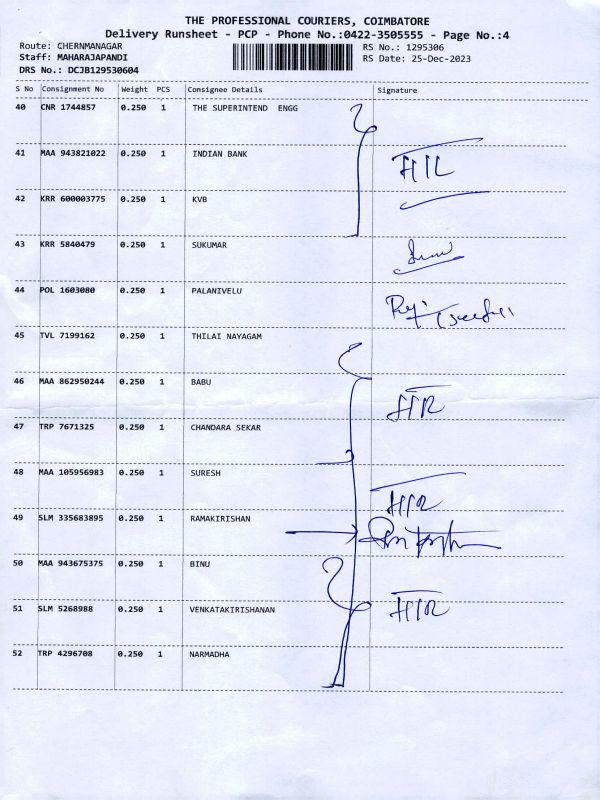 THE PROFESSIONAL COURIERS, COIMBATORE
Delivery Runsheet - PCP - Phone No.:0422-3505555 - Page No.:4
Route: CHERNMANAGAR RS No.: 1295306
Staff: MAHARAJAPANDI RS Date: 25-Dec-2023
DRS No.: DCJB129530604
S No Consignment No Weight PCS Consignee Details Signature
40 CNR 1744857 0.250 1 THE SUPERINTEND ENGG
41 MAA 943821022 0.250 1 INDIAN BANK
42 KRR 600003775 0.250 1 KVB
43 KRR 5840479 0.250 1 SUKUMAR
44 POL 1603080 0.250 1 PALANIVELU
45 TVL 7199162 0.250 1 THILAI NAYAGAM
46 MAA 862950244 0.250 1 BABU
47 TRP 7671325 0.250 1 CHANDARA SEKAR
48 MAA 105956983 0.250 1 SURESH
49 SLM 335683895 0.250 1 RAMAKIRISHAN
50 MAA 943675375 0.250 1 BINU
51 SLM 5268988 0.250 1 VENKATAKIRISHANAN
52 TRP 4296708 0.250 1 NARMADHA